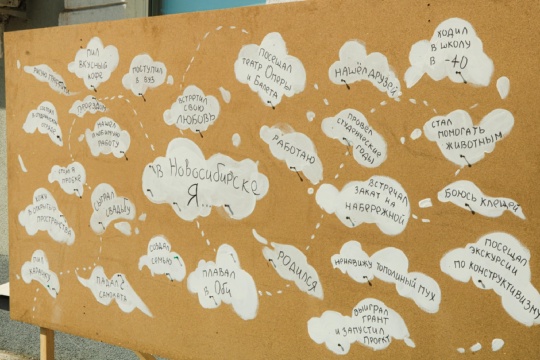 ПИЛ
ВКУСНЫЙ
КОФЕ
ПОСТУПИЛ
В ВУЗ
ПОСЕЩАЛ
ТЕАТР ОПЕРЫ
И БАЛЕТА
НАШЁЛ ДРУЗЕЙ
ХОДИЛ
В ШКОЛУ
В -40
ВСТРЕТИЛ
СВОЮ
ЛЮБОВЬ
НАШЁЛ
ЛЮБИМУЮ
РАБОТУ
РАБОТАЮ
ПРОВЁЛ
СТУДЕНЧЕСКИЕ
ГОДЫ
СТАЛ
ПОМОГАТЬ
ЖИВОТНЫМ
В НОВОСИБИРСКЕ
Я...
СТОЯЛ
В ПРОБКЕ
СЫГРАЛ
СВАДЬБУ
ВСТРЕЧАЛ
ЗАКАТ НА
НАБЕРЕЖНОЙ
БОЮСЬ КЛЕЩЕЙ
ПРОСТРАНСТВА
СОЗДАЛ
СЕМЬЮ
ПЛАВАЛ
В ОБИ
РОДИЛСЯ
НЕНАВИЖУ ТОПОЛИНЫЙ ПУХ
ПОСЕЩАЛ
ЭКСКУРСИИ
ПО КОНСТРУКТИВИЗМУ
ПАДАЛ С
САМОКАТА
ВЫИГРАЛ
ГРАНТ
И ЗАПУСТИЛ
ПРОЕКТ